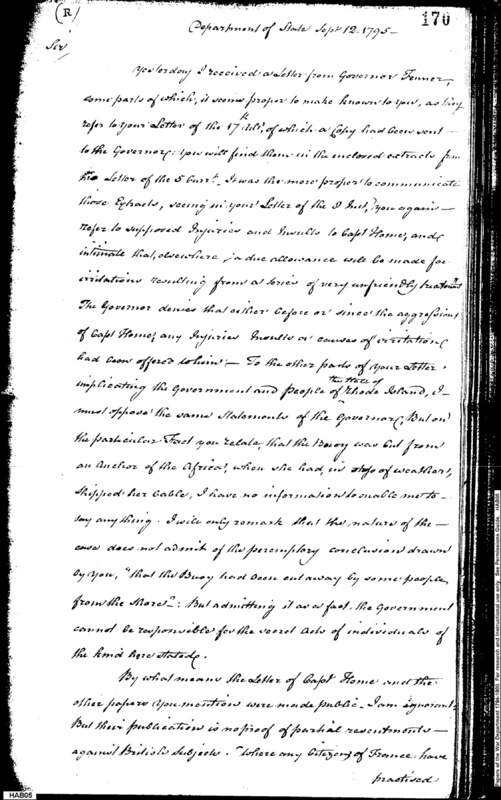 (R)
170
Department of State Sept 12. 1795 -
Sir,
Yesterday I received a Letter from Governor Fenner,
some parts of which, it seems proper to make known to you, as they
refer to your Letter of the 17th Ulto, of which a Copy had been sent -
to the Governor: you will find them in the enclosed extracts from
his Letter of the 5 Currt. It was the more proper to communicate
those Extracts, seeing in your Letter of the 8 Inst, you again -
refer to supposed Injuries and Insults to Capt Home, and
intimate that, elsewhere, a due allowance will be made for
irritations resulting from a series of very unfriendly treatment
The Governor denies that either before or since the aggressions
of Capt Home, any Injuries Insults or causes of irritation
had been offered to him - To the other parts of your Letter
the State of
implicating the Government and people of Rhode Island, I -
must oppose the same statements of the Governor; But on
the particular Fact you relate, that the Buoy was cut from
an Anchor of the Africa, when she had, in stress of weather,
slipped her Cable, I have no information to enable me to -
say any thing. I will only remark that the nature of the -
case does not admit of the peremptory conclusion drawn
by you, "that the Buoy had been cut away by some people
from the Shore": But admitting it as a fact, the Government
cannot be responsible for the secret acts of individuals of
the kind here stated.
By what means the Letter of Capt Home and the
other papers you mention were made public I am ignorant;
But their publication is no proof of partial resentments -
against British Subjects. "Where any Citizens of France have
practised
HAB05